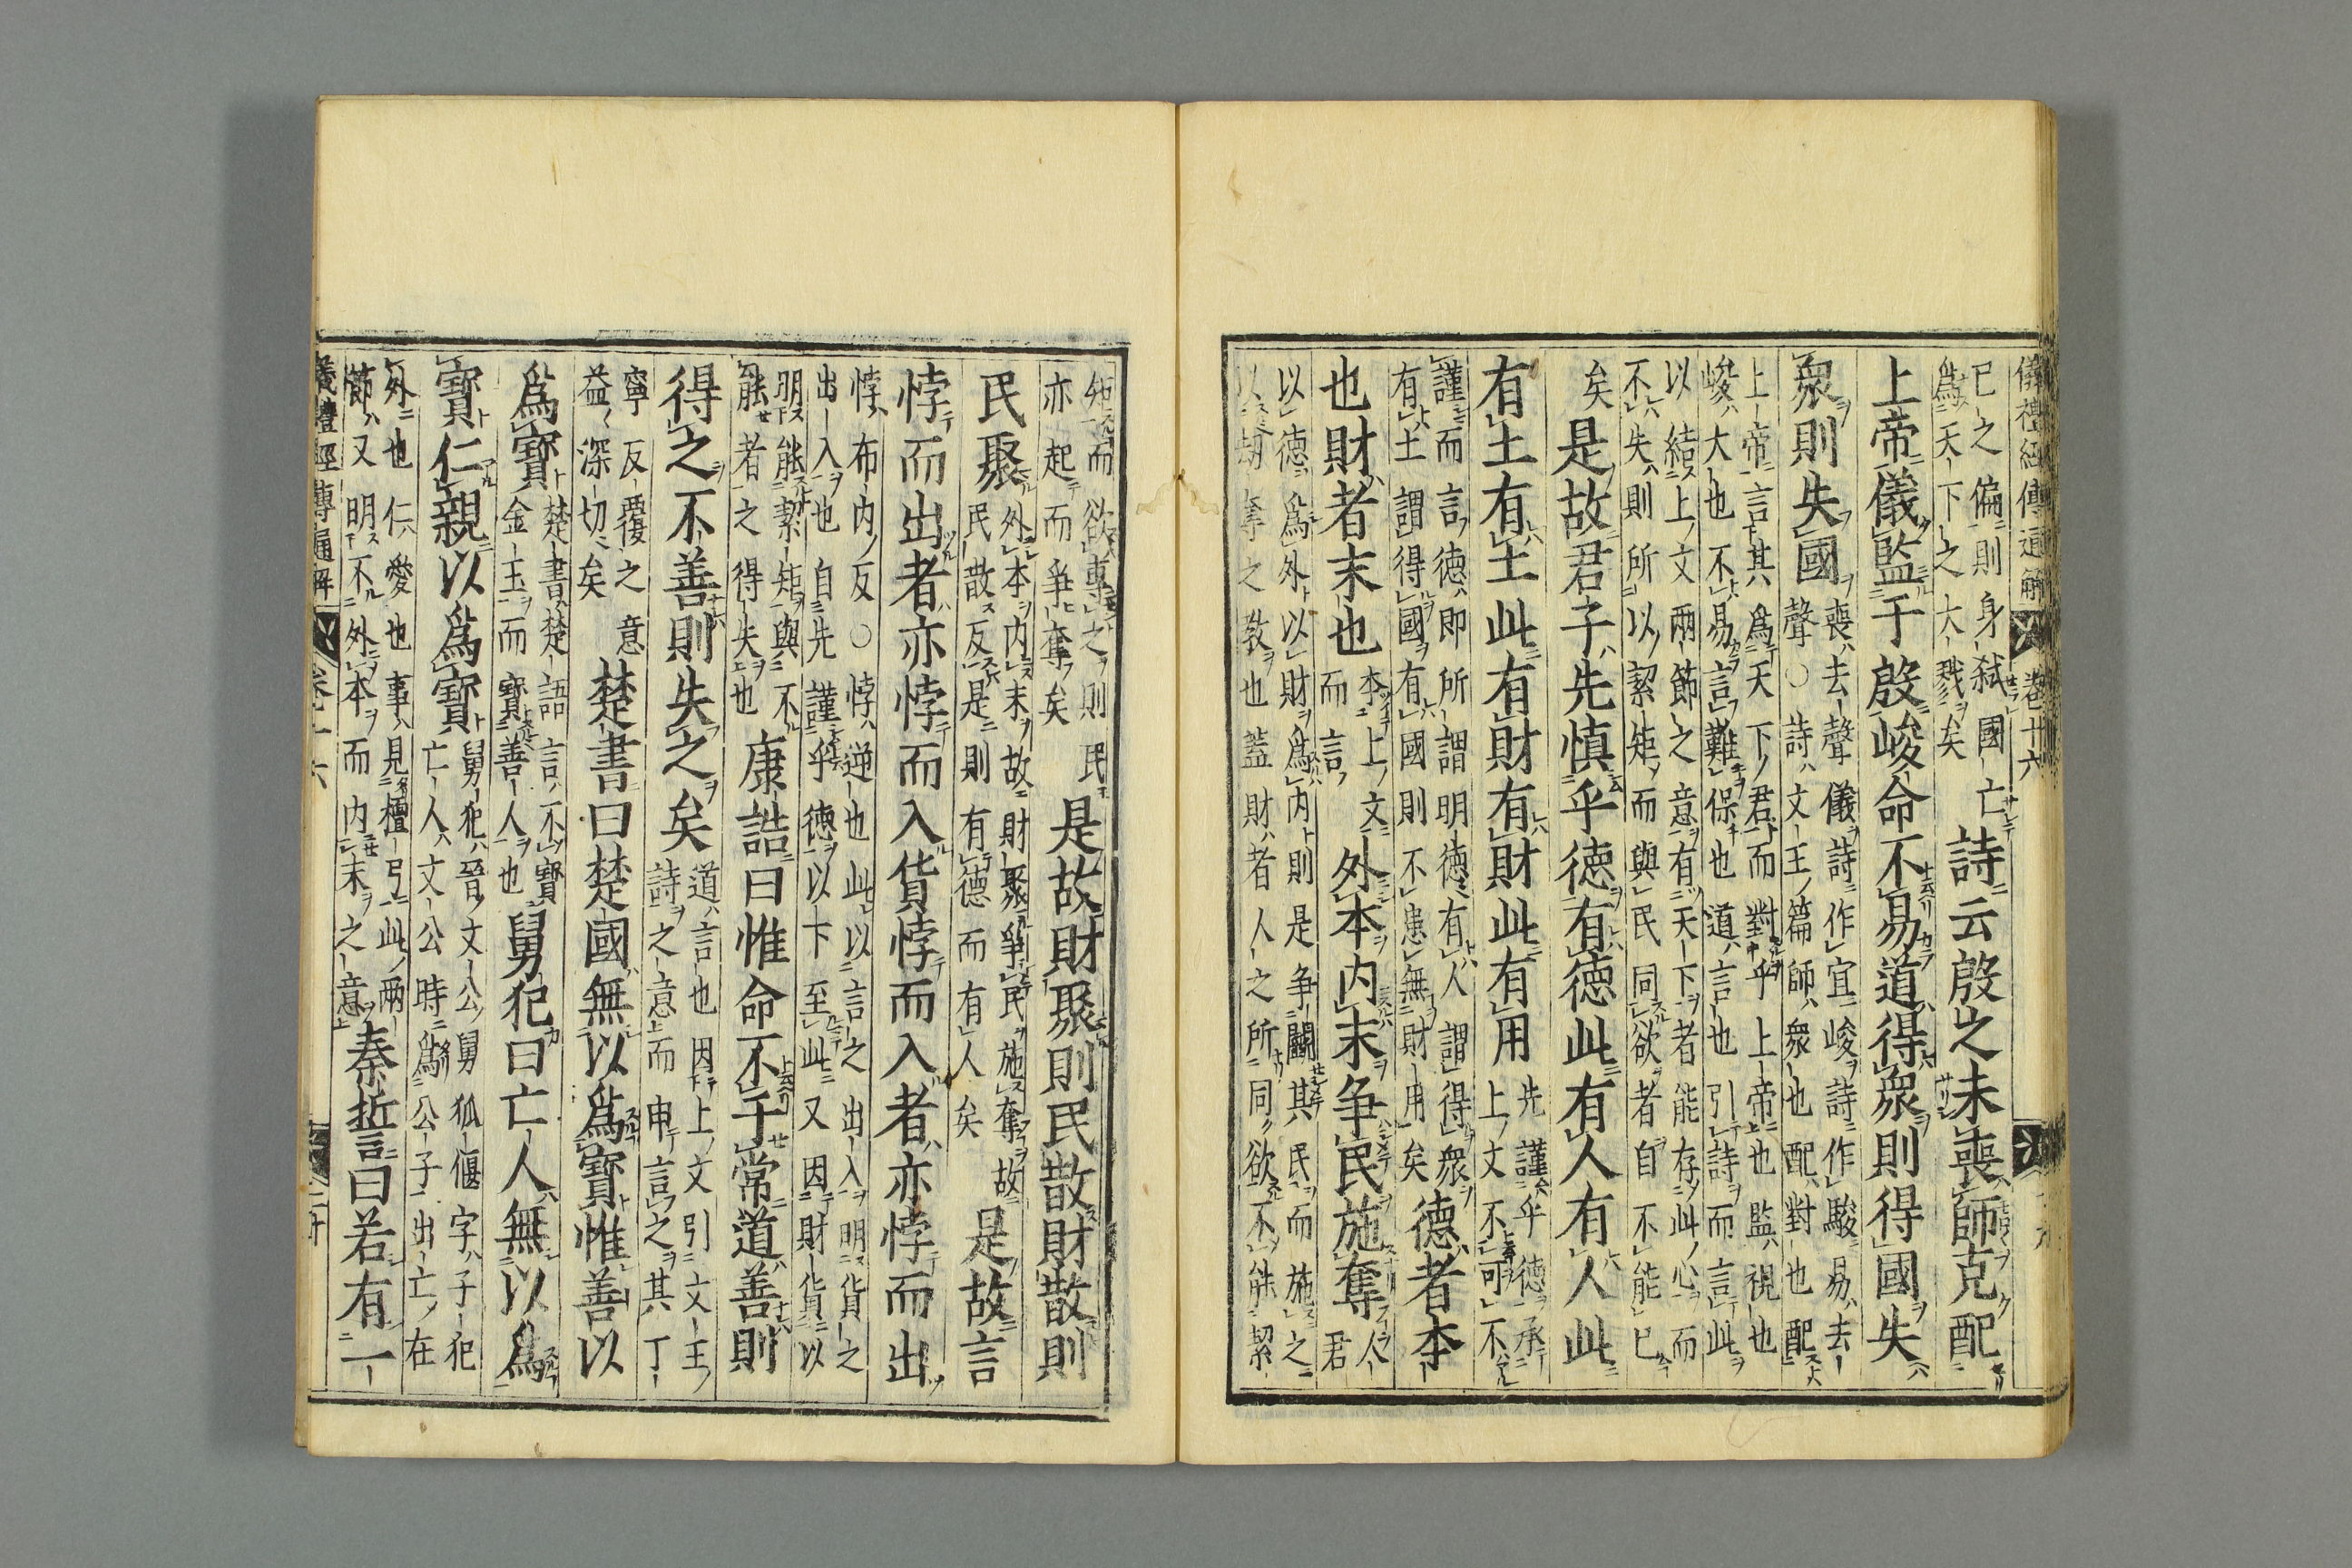 儀禮經傳通解 卷十六
己之偏則身弑國亡
爲天下之大戮矣
詩云殷之未喪師克配
上帝儀監于殷峻命不易道得衆則得國失
衆則失國
喪去聲儀詩作宜峻詩作駿易去
聲○詩文王篇師衆也配對也配
上帝言其爲天下君而對乎上帝也監視也
峻大也不易言難保也道言也引詩而言此
以結上文兩節之意有天下者能存此心而
不失則所以絜矩而與民同欲者自不能已
矣是故君子先慎乎德有德此有人有人此
有土有土此有財有財此有用
先謹乎德承
上文不可不
謹而言德即所謂明德有人謂得衆
有土謂得國有國則不患無財用矣
德者本
也財者末也
本上文
而言
外本内末争民施奪
人
君
以德爲外以財爲内則是争鬭其民而施之
以劫奪之教也蓋財者人之所同欲不能絜
矩而欲專之則民
亦起而爭奪矣
是故財聚則民散財散則
民聚
外本内末故財聚爭民施奪故
民散反是則有德而有人矣
是故言
悖而出者亦悖而入貨悖而入者亦悖而出
悖布内反○悖逆也此以言之出入明貨之
出入也自先謹乎德以下至此又因財貨以
明能絜矩與不
能者之得失也
康誥曰惟命不于常道善則
得之不善則失之矣
道言也因上文引文王
詩之意而申言之其丁
寧反覆之意
益深切矣
楚書曰楚國無以爲寶惟善以
爲寶
楚書楚語言不寶
金玉而寶善人也
舅犯曰亡人無以爲
寶仁親以爲寶
舅犯晉文公舅狐偃字子犯
亡人文公時爲公子出亡在
外也仁愛也事見檀弓此兩
節又明不外本而内末之意
秦誓曰若有一
儀禮經傳通解 卷十六